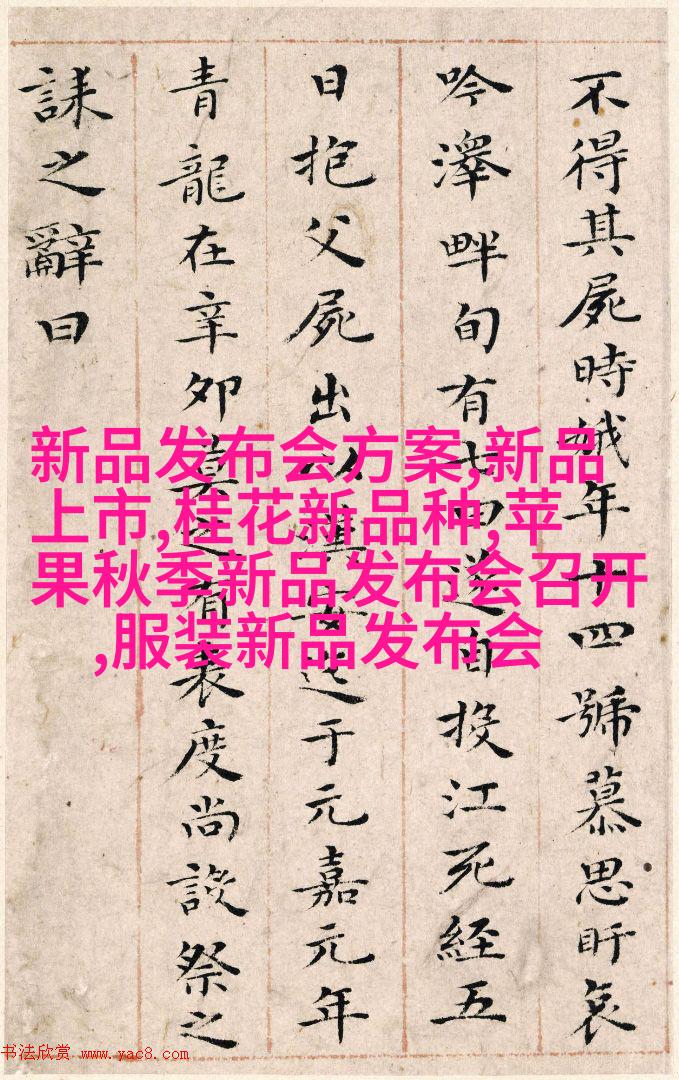 不得其屍時娥年十四號慕思盱哀
吟澤畔旬有七日遂自投江死經五
日抱父屍出以漢安迄于元嘉元年
青龍在辛卯莫之有表度尚設祭之
誄之辭曰
新品发布会方案,新品
上市,桂花新品种,苹
果秋季新品发布会召开
,服装新品发布会
书法欣赏 www.yac8.com